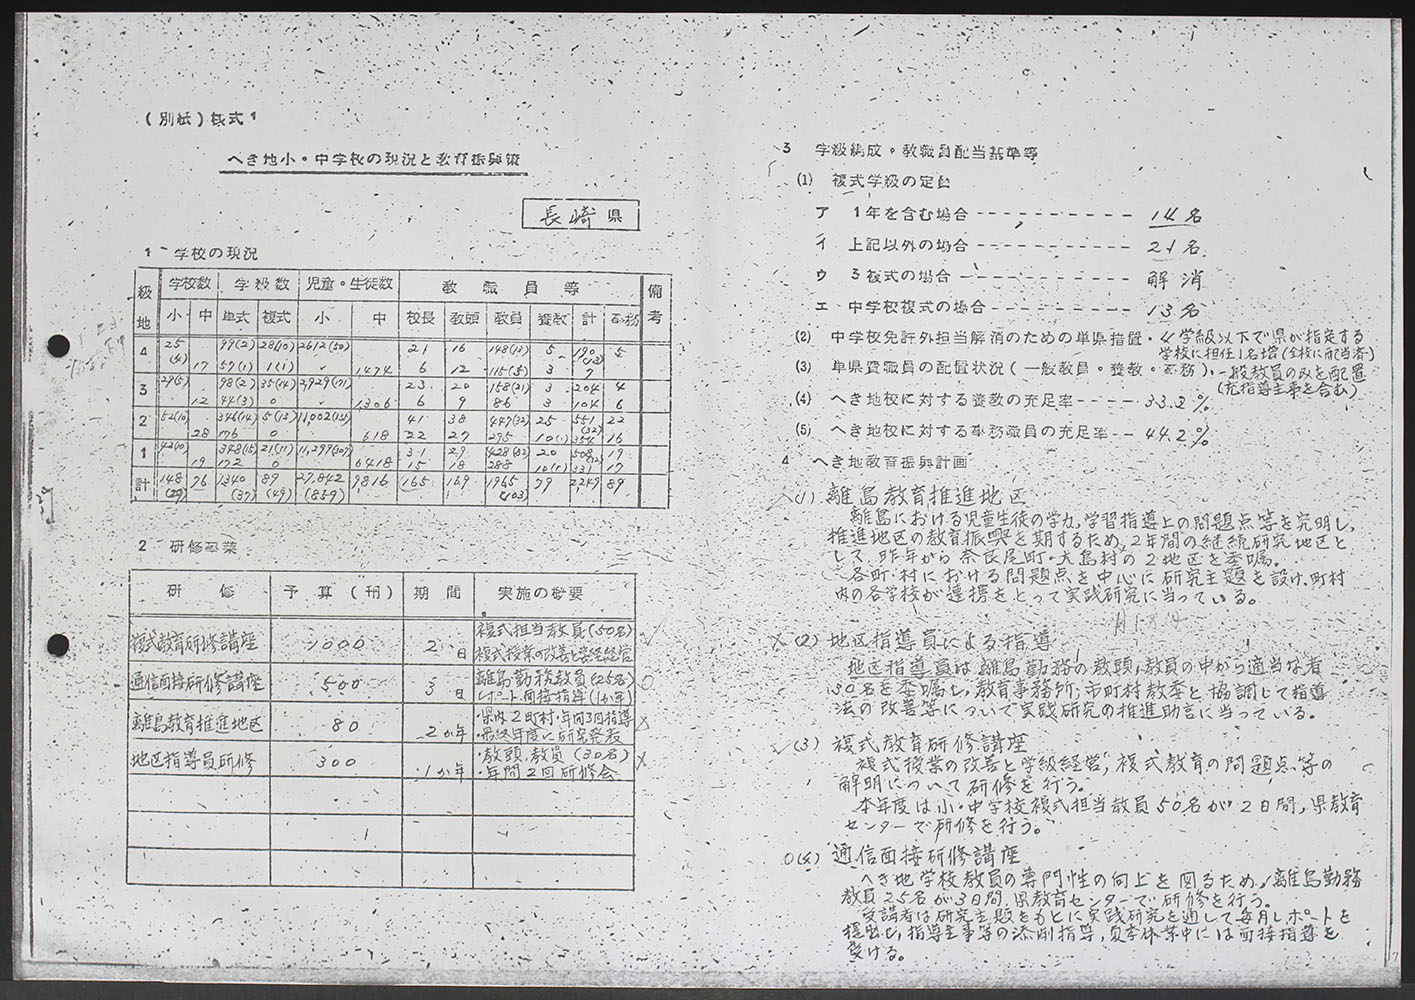 (別紙)様式1
へき地小・中学校の現況と教育振興策
長崎県
1 学校の現況
級地 学校数 学級数 児童・生徒数 教職員等 備考
小 中 単式 複式 小 中 校長 教頭 教員 養教 計 事務
4 25 99(2) 28(10) 2612(50) 21 16 148(13) 5 190 5
(4) 17 57(1) 1(1) 1474 6 12 115(5) 3
3 29(5) 98(2) 35(14) 2,929(171) 23 20 158(21) 3 204 4
12 44(3) 0 1306 6 9 86 3 104 6
2 52(10) 346(14) 5(13) 11,002 41 38 447(32) 25 551 22
28 176 0 618 22 27 295 10(1) 354 16
1 42(10) 348(15) 21(11) 11,299(307) 31 29 428(32) 20 508 19
19 172 0 6418 15 18 288 10(5) 331 17
計 148 76 1340 89 27,842 9816 165 169 1965 79 2249 89
(29) (37) (49) (859) (103)
2 研修事業
研修 予算(千) 期間 実施の概要
複式教育研修講座 1000 2日 複式担当教員(50名)
複式授業の改善と学級経営
通信面接研修講座 500 3日 離島勤務教員(25名)
レポート・面接指導(1か年)
離島教育推進地区 80 2か年 ・県内2町村・年間3回指導
・最終年度に研究発表
地区指導員研修 300 1か年 ・教頭、教員(30名)
・年間2回研修会
3 学級編成・教職員配当基準等
(1) 複式学級の定員
ア 1年を含む場合 ---------- 14名
イ 上記以外の場合 ---------- 21名
ウ 3複式の場合 ---------- 解消
エ 中学校複式の場合 ---------- 13名
(2) 中学校免許外担当解消のための単県措置・4学級以下で県が指定する
学校に担任1名増(5校に配当済)
(3) 単県費職員の配置状況(一般教員・養教・事務)・一般教員のみを配置
(充指導主事を含む)
(4) へき地校に対する養教の充足率----- 33.3%
(5) へき地校に対する事務職員の充足率-- 44.2%
4 へき地教育振興計画
(1) 離島教育推進地区
離島における児童生徒の学力,学習指導上の問題点等を究明し,
推進地区の教育振興を期するため,2年間の継続研究地区と
して、昨年から奈良尾町・大島村の2地区を委嘱。
各町・村における問題点を中心に研究主題を設け、町村
内の各学校が連携をとって実践研究に当っている。
×(2) 地区指導員による指導
地区指導員は離島勤務の教頭,教員の中から適当な者
30名を委嘱し,教育事務所,市町村教委と協調して指導
法の改善等について実践研究の推進助言に当っている。
✓(3) 複式教育研修講座
複式授業の改善と学級経営,複式教育の問題点等の
解明について研修を行う。
本年度は小・中学校複式担当教員50名が2日間,県教育
センターで研修を行う。
○(4) 通信面接研修講座
へき地学校教員の専門性の向上を図るため,離島勤務
教員25名が3日間,県教育センターで研修を行う。
受講者は研究主題をもとに実践研究を通して毎月レポートを
提出し,指導主事等の添削指導,夏季休業中には面接指導を
受ける。